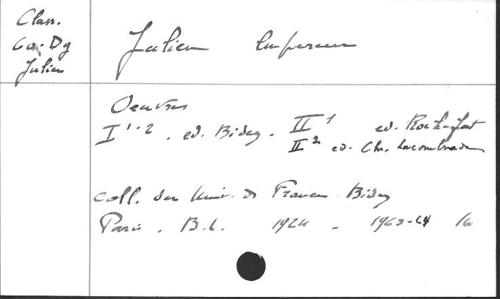 Class.
Ga. Dg
Julien
Julien Empereur
Oeuvres
I 1-2. ed. Bidez - II 1 ed. Rochefort
II 2 ed. Chr. Lacombrade
Coll. des Univ. de France Bidez
Paris. B.L. 1924 - 1963-64